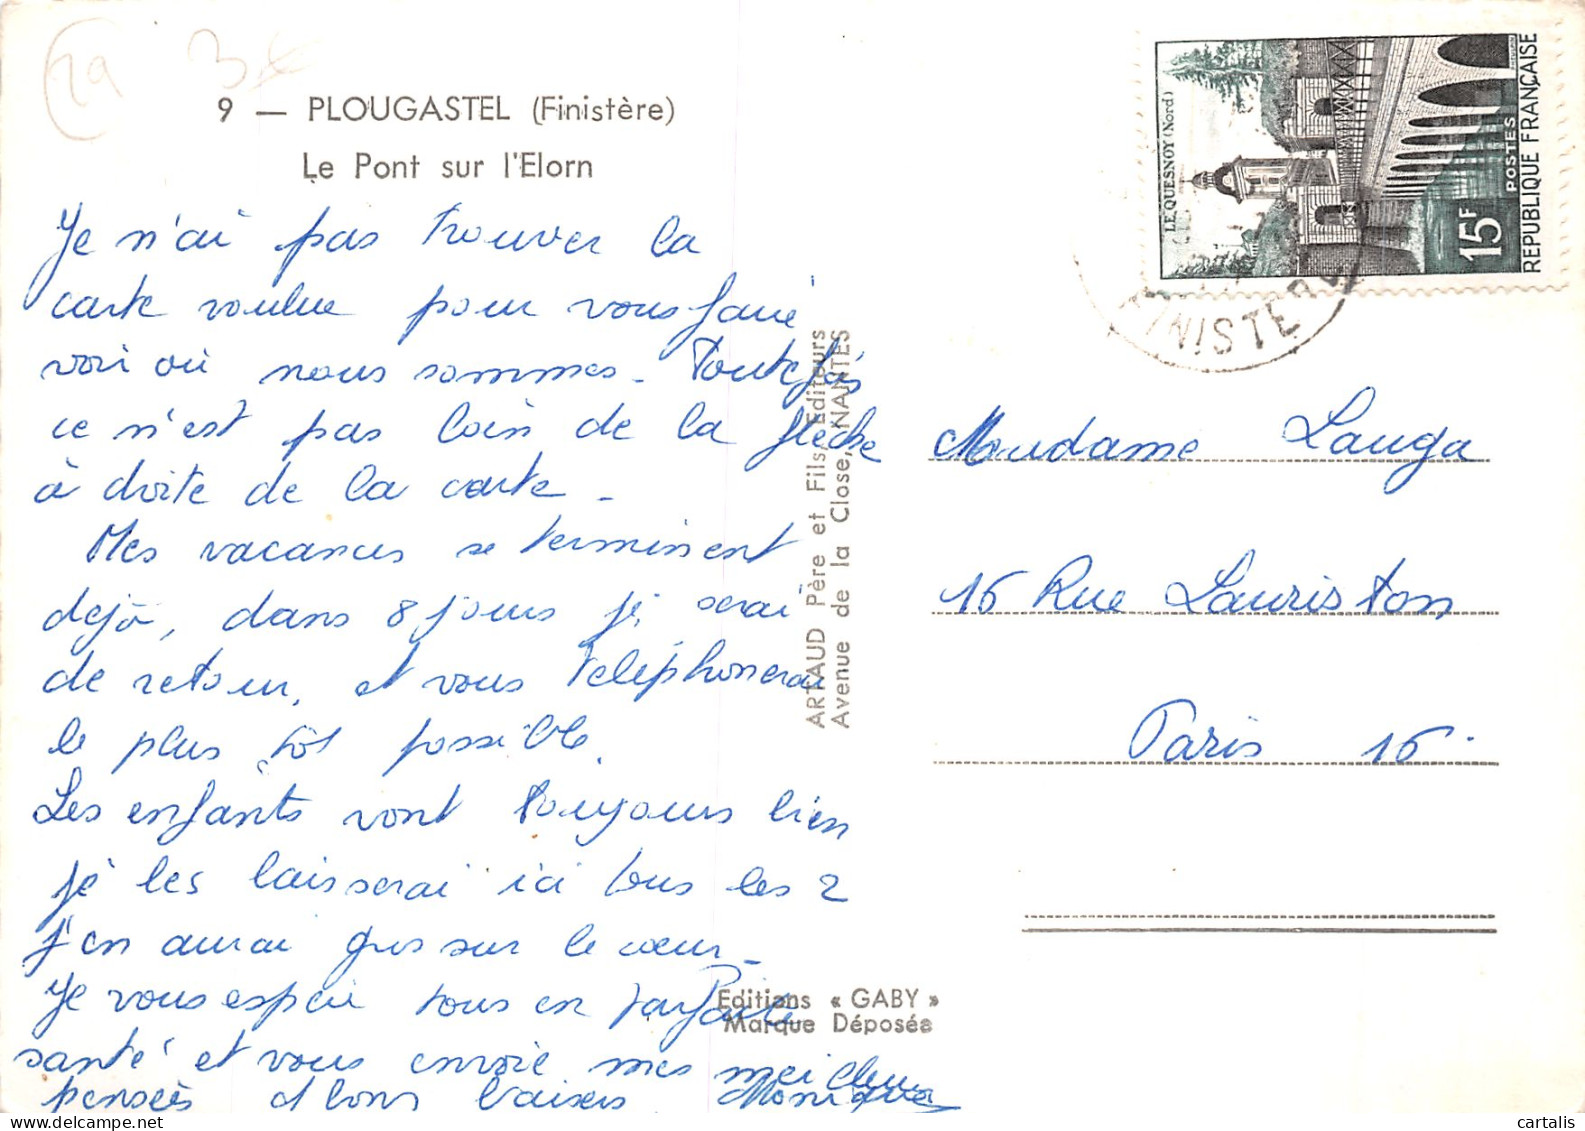 29 3€
9 — PLOUGASTEL (Finistère)
Le Pont sur l'Elorn
Je n'ai pas trouver la
carte voulue pour vous faire
voir où nous sommes. Toutefois
ce n'est pas loin de la flèche
à droite de la carte -
Mes vacances se terminent
déjà, dans 8 jours je serai
de retour, et vous téléphonerai
le plus tôt possible.
Les enfants vont toujours bien
je les laisserai ici tous les 2
j'en aurai gros sur le cœur -
Je vous espère tous en parfaite
santé et vous envoie mes meilleures
pensées et bons baisers Monique
ARTAUD Père et Fils, Editeurs
Avenue de la Close, NANTES
Editions « GABY »
Marque Déposée
LE QUESNOY (Nord)
15F
POSTES
REPUBLIQUE FRANÇAISE
FINISTERE
Madame Lauga
16 Rue Lauriston
Paris 16.
cartalis